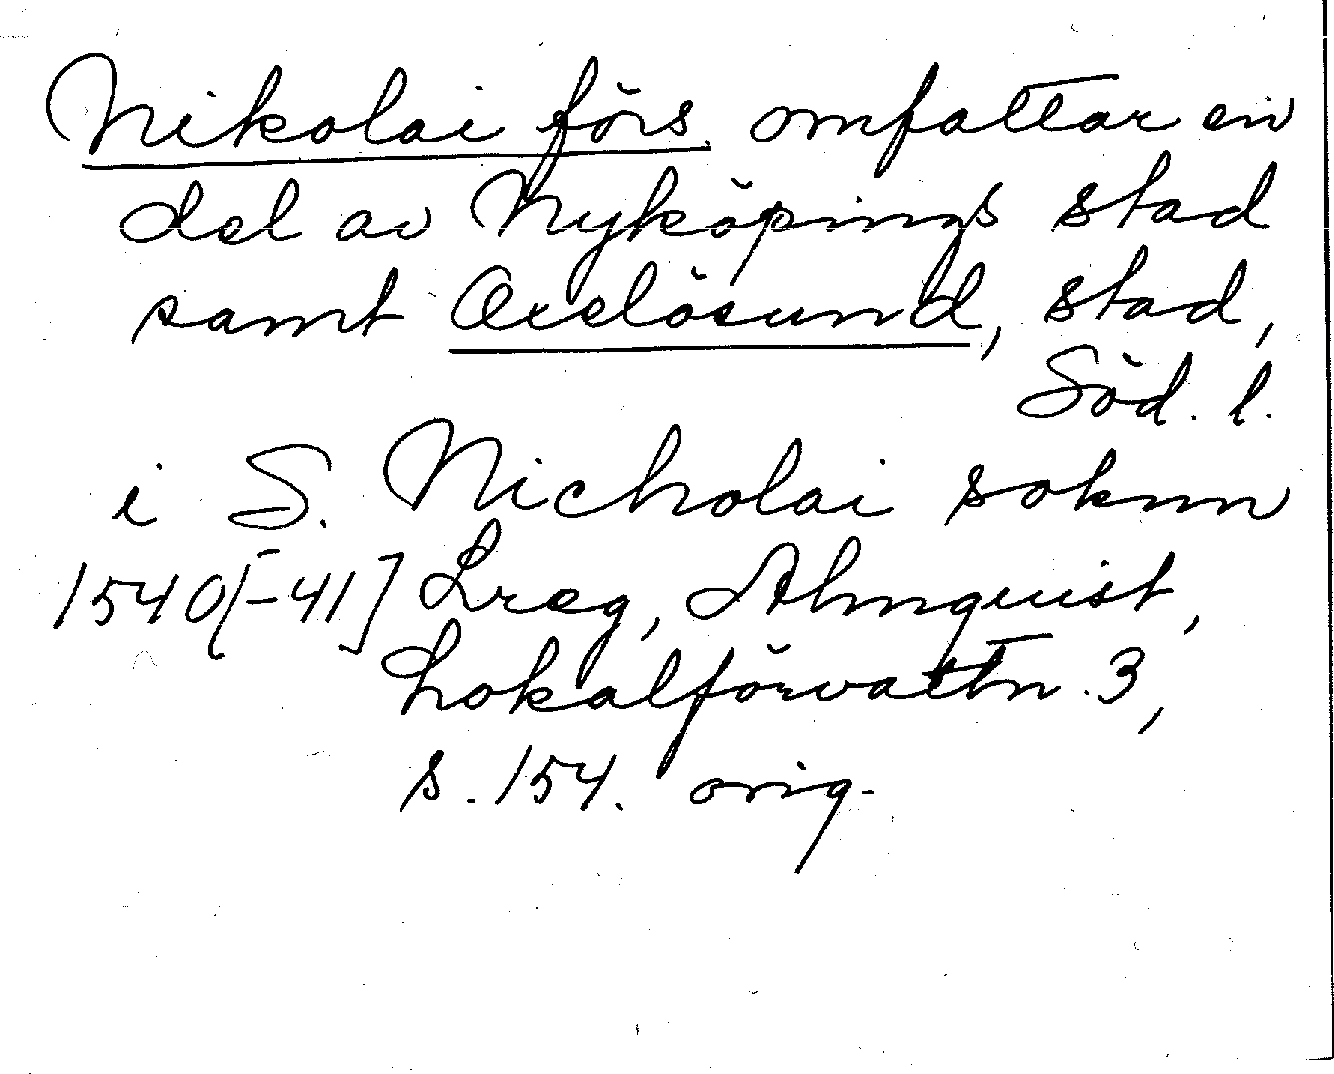 Nikolai förs. omfattar en
del av Nyköpings stad
samt Oxelösund, stad,
Söd. l.
i S. Nicholai soknn
1540[-41] Lreg, Almquist,
Lokalförvaltn. 3,
s. 154. orig.